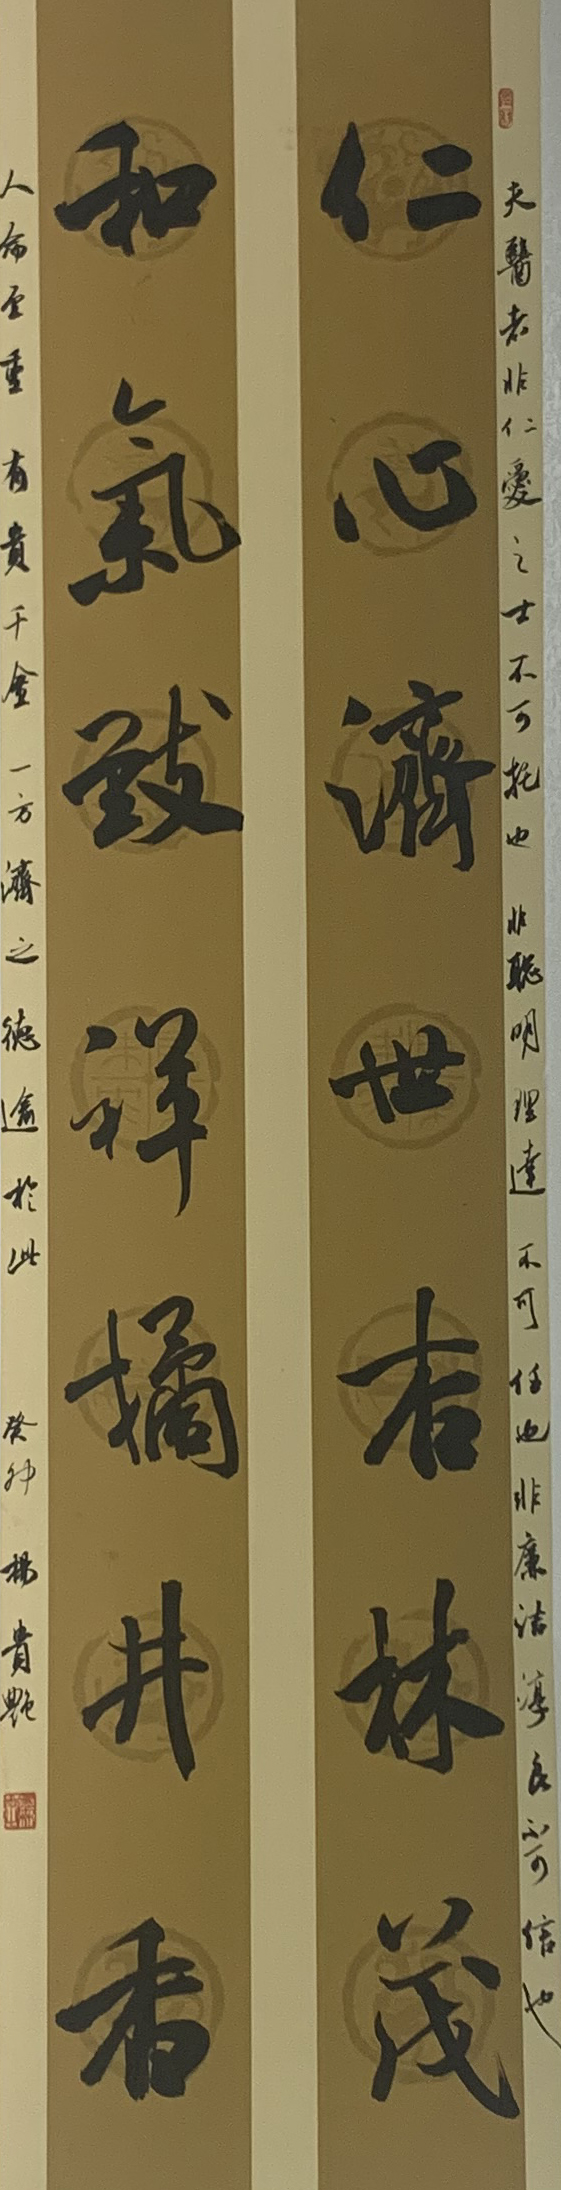 夫醫者非仁愛之士不可托也非聰明理達不可任也非廉洁淳良不可信也
仁心濟世杏林茂
和氣致祥橘井香
人命至重有貴千金一方濟之德逾於此
癸卯楊貴艷